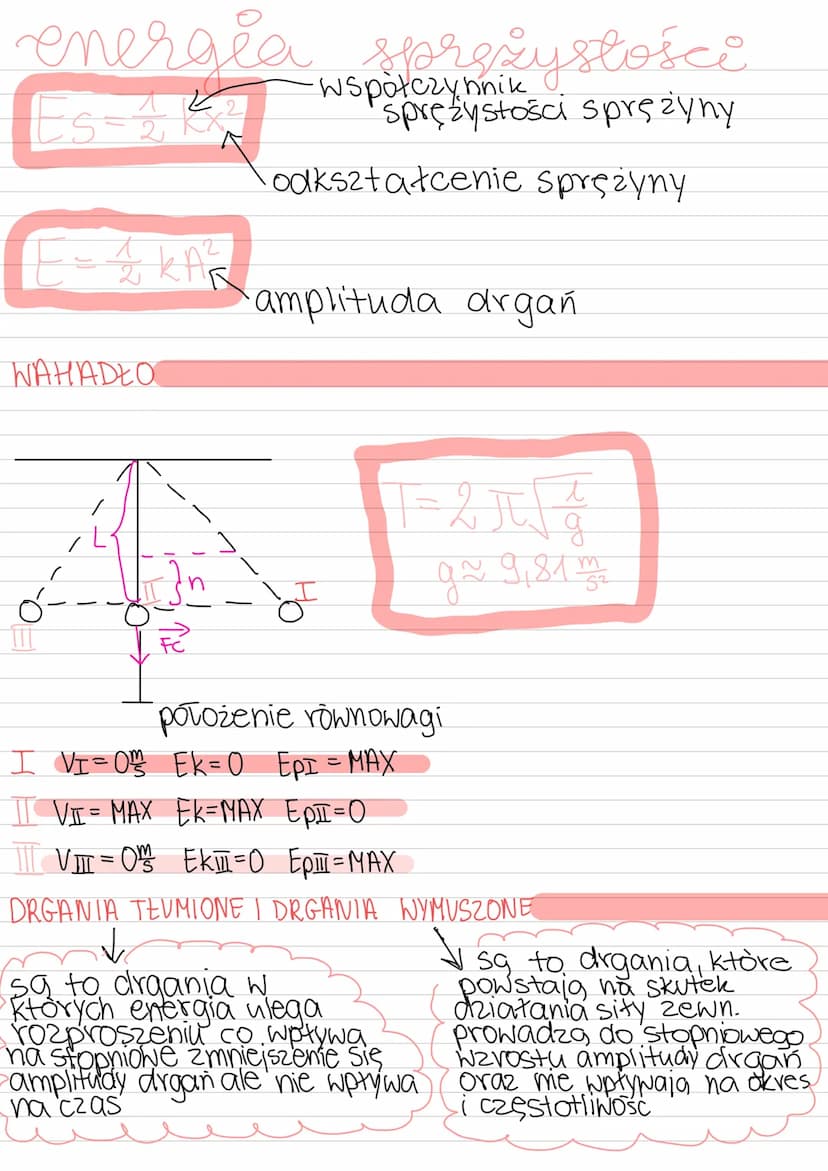 energia sprężystości
Es = 1/2 kx²
współczynnik
sprężystości sprężyny
odkształcenie sprężyny
E = 1/2 kA²
amplituda drgań
WAHADŁO
T = 2π√(l/g)
g ≈ 9,81 m/s²
L
II
h
I
III
Fc
położenie równowagi
I VI = 0 m/s Ek = 0 EpI = MAX
II VII = MAX Ek = MAX EpII = 0
III VIII = 0 m/s EkIII = 0 EpIII = MAX
DRGANIA TŁUMIONE I DRGANIA WYMUSZONE
są to drgania w
których energia ulega
rozproszeniu co wpływa
na stopniowe zmniejszenie się
amplitudy drgań ale nie wpływa
na czas
są to drgania, które
powstają na skutek
działania siły zewn.
prowadzą do stopniowego
wzrostu amplitudy drgań
oraz nie wpływają na okres
i częstotliwość